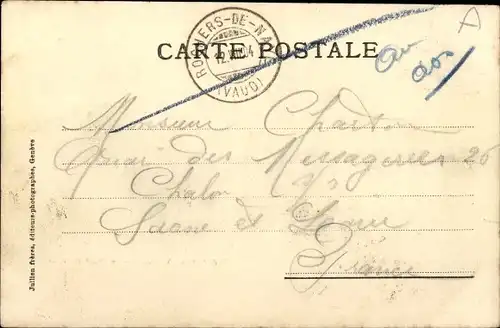 CARTE POSTALE
ROCHERS-DE-NAYE
12.VII.04
(VAUD)
A
au
dos
Monsieur
Quai des Messageries 26
Chalon s/s
Saone et Loire
France
Jullien frères, éditeurs-photographes, Genève